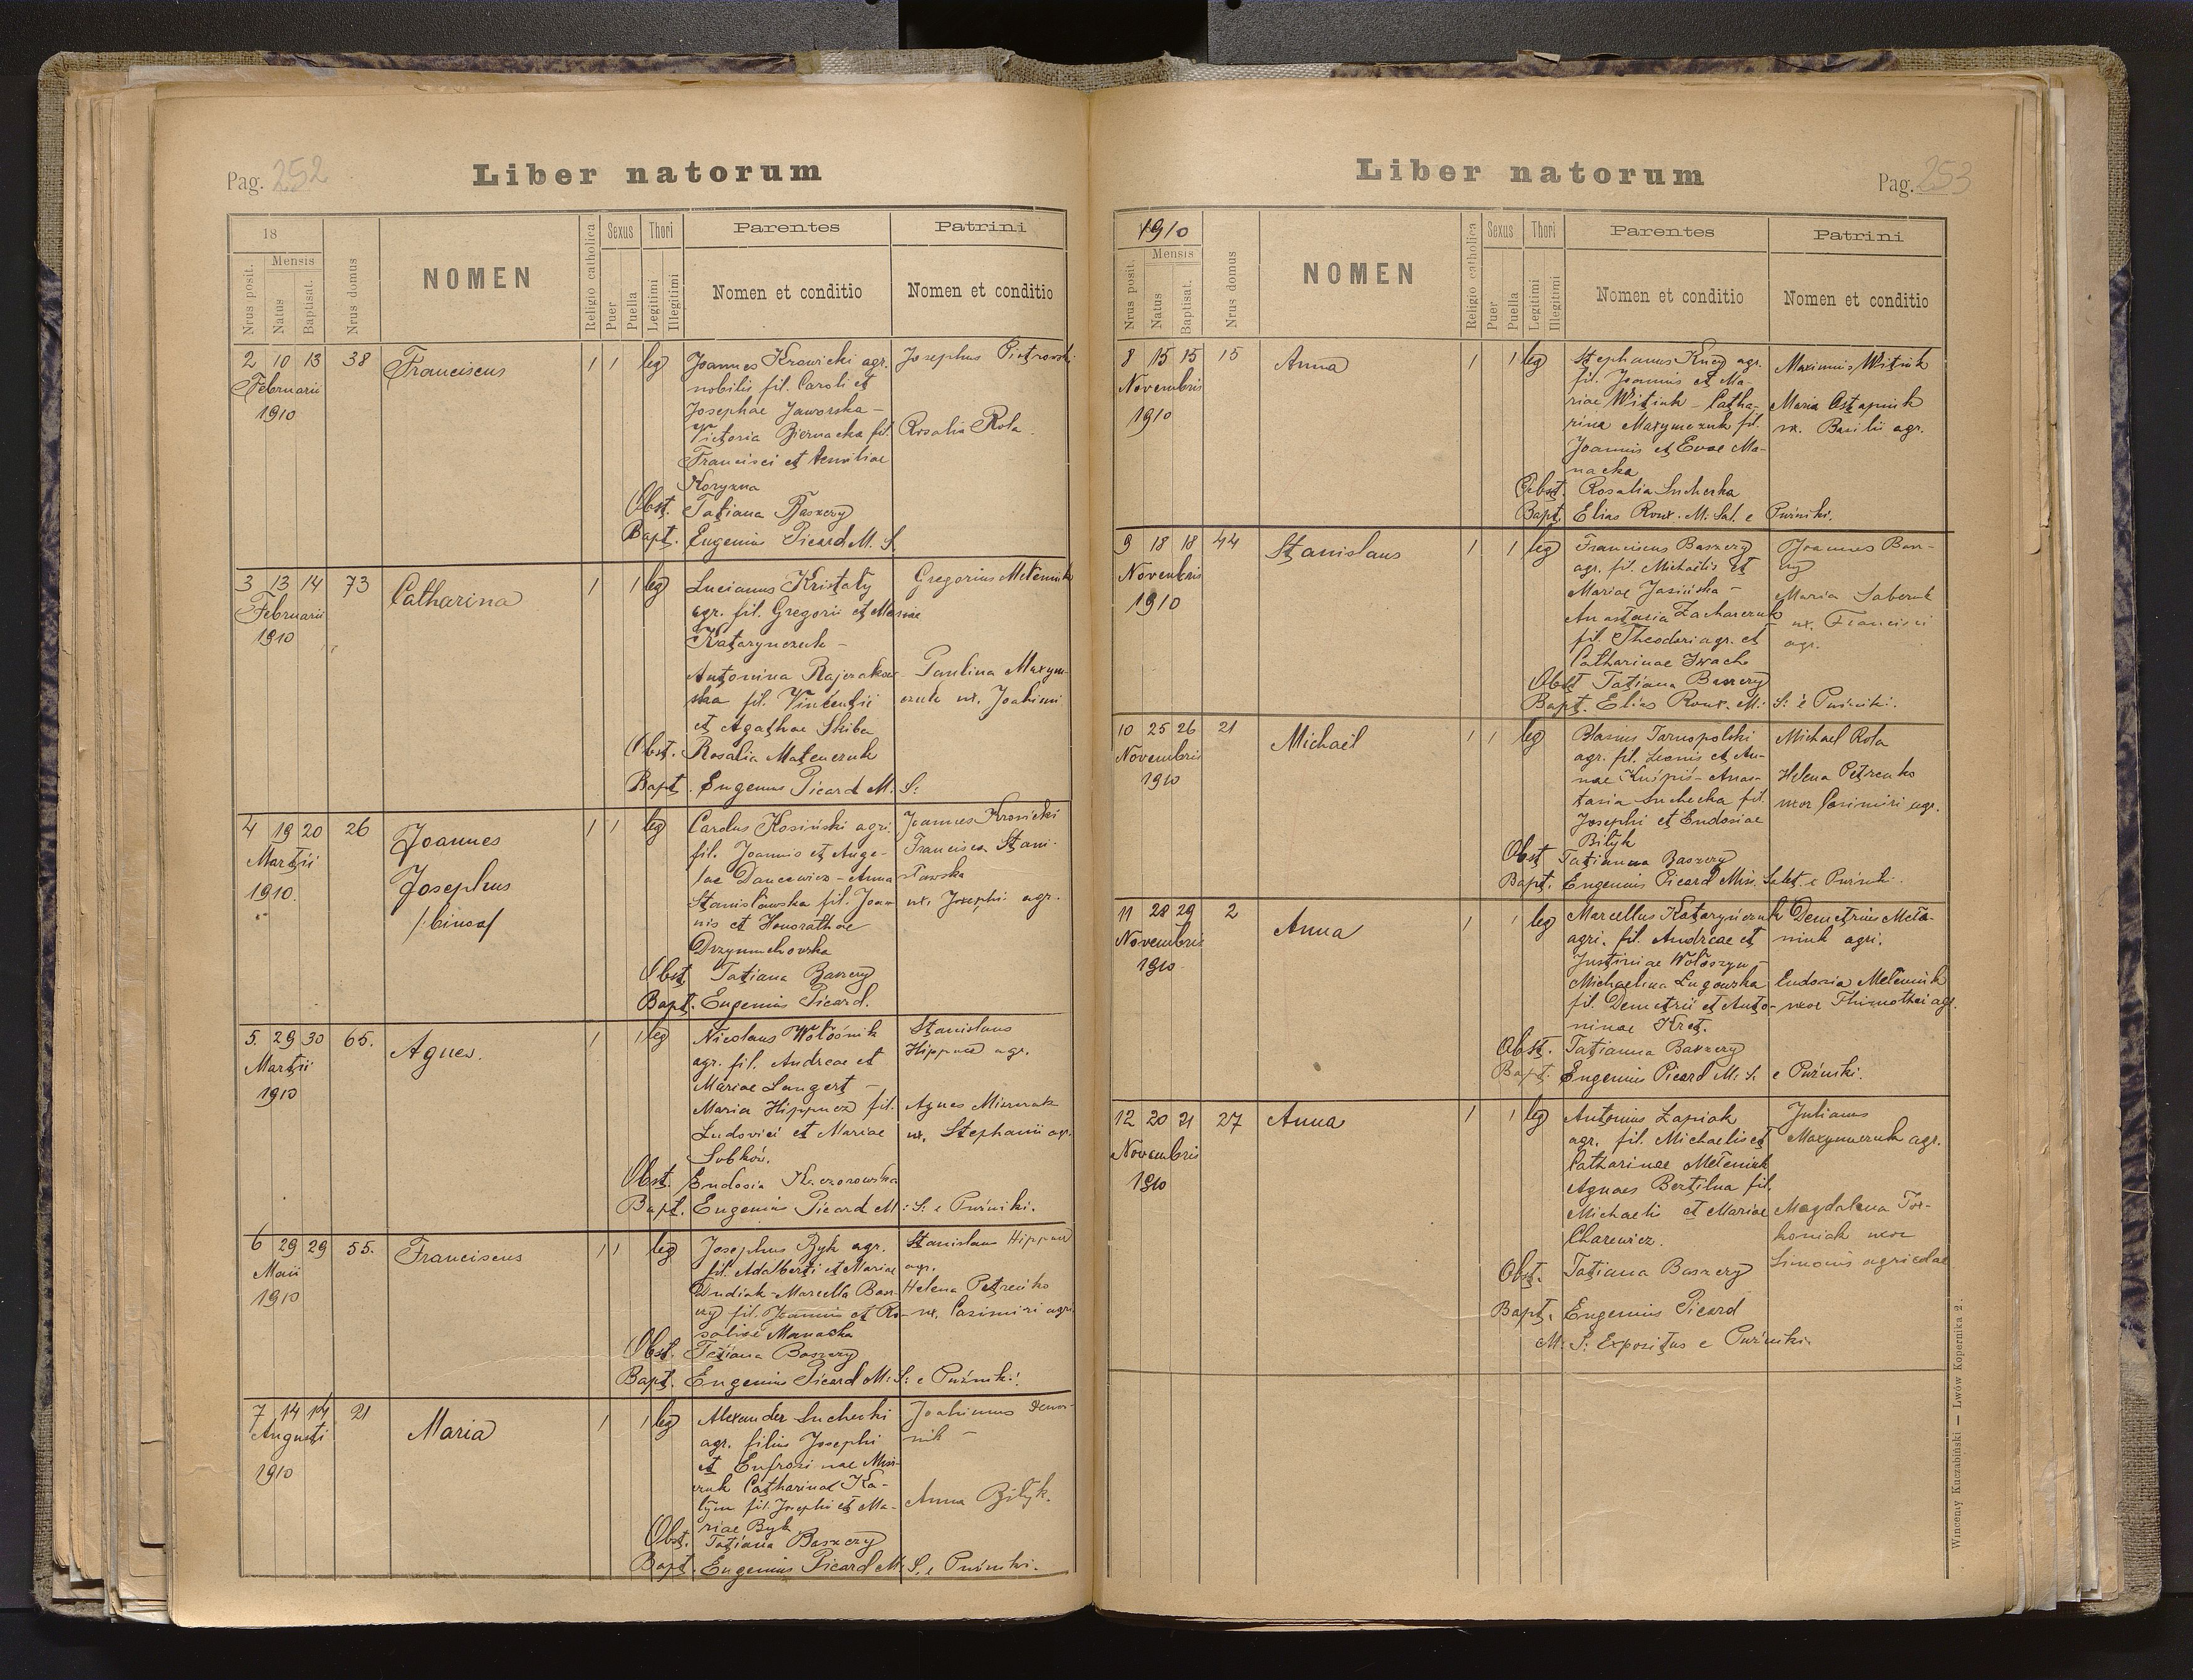 Pag. 252
Liber natorum
18
Mensis
Nrus posit.
Natus
Baptisat.
Nrus domus
NOMEN
Religio catholica
Sexus
Puer
Puella
Thori
Legitimi
Illegitimi
Parentes
Nomen et conditio
Patrini
Nomen et conditio
2 10 13 38 Franciscus 1 1 leg
Februarii
1910
Joannes Krowicki agr.
nobilis fil. Caroli et
Josephae Jaworska -
Victoria Biernacka fil.
Francisci et
Josephus Piotrowski
Rosalia Rola
Obst. Tatiana Baszczy
Bapt. Eugenius Picard M. S.
3 13 14 73 Catharina 1 1 leg
Februarii
1910
Lucianus Kristaly
agr. fil. Gregorii et Mariae
Katarynczuk -
Antonina Rajcrakow-
ska fil. Vincentii
et Agathae Skiba
Gregorius Mełeniuk
Paulina Maxym-
czuk ux. Joakimi
Obst. Rosalia Matewczuk
Bapt. Eugenius Picard M. S:
4 19 20 26 Joannes 1 1 leg
Martii
1910.
Josephus
/:binom/
Carolus Kosiński agri.
fil. Joannis et Ange-
lae Dancewicz - Anna
Stanisławska fil. Joan-
nis et Honorathae
Drzymuchowska
Joannes Krowicki
Francisca Stani-
sławska
ux. Josephi agr.
Obst. Tatiana Baszczy
Bapt. Eugenius Picard.
5. 29 30 65. Agnes. 1 1 leg
Martii
1910
Nicolaus Wołośnik
agr. fil. Andreae et
Mariae Langert -
Maria Hippner fil.
Ludovici et Mariae
Sobków.
Stanislaus
Hippner agr.
Agnes
ux. Stephani agr.
Obst. Eudosia Kaczorowska
Bapt. Eugenius Picard M: S. e Puźniki.
6 29 29 55. Franciscus 1 1 leg
Maii
1910
Josephus Byk agr.
fil. Adalberti et Mariae
Dudiak - Marcella Basz-
czy fil. Joannis et Ro-
saliae Manacka
Stanislaus Hippner
agr.
Helena Petrenko
ux. Casimiri agr.
Obst. Tatiana Baszczy
Bapt. Eugenius Picard M: S: e Puźniki.
7 14 14 21 Maria 1 1 leg
Augusti
1910
Alexander Suchecki
agr. filius Josephi
et Eufrosinae Misi-
czuk Catharinae Ka-
łym fil. Josephi et Ma-
riae Byk
Joakimus
nik -
Anna Biłyk.
Obst. Tatiana Baszczy
Bapt. Eugenius Picard M. S. e Puźniki.
Liber natorum
Pag. 253
1910
Mensis
Nrus posit.
Natus
Baptisat.
Nrus domus
NOMEN
Religio catholica
Sexus
Puer
Puella
Thori
Legitimi
Illegitimi
Parentes
Nomen et conditio
Patrini
Nomen et conditio
8 15 15 15 Anna 1 1 leg
Novembris
1910
Stephanus Kucy agr.
fil. Joannis et Ma-
riae Witiuk - Catha-
rina Maxymczuk fil.
Joannis et Evae Ma-
nacka
Maximus Witiuk
Maria Ostapiuk
ux. Basilii agr.
Obst. Rosalia Suchecka
Bapt. Elias Roux. M. Sal. e Puźniki.
9 18 18 44 Stanislaus 1 1 leg
Novembris
1910
Franciscus Baszczy
agr. fil. Michaelis et
Mariae Jasińska -
Anastasia Zacharczuk
fil. Theodori agr. et
Catharinae Iwach
Joannes Basz-
czy
Maria
ux. Francisci
agr.
Obst Tatiana Baszczy
Bapt. Elias Roux. M: S: e Puźniki.
10 25 26 21 Michael 1 1 leg
Novembris
1910
Blasius Tarnopolski
agr. fil. Leonis et An-
nae Kuśpiś - Anas-
tasia Suchecka fil.
Josephi et Eudosiae
Biłyk
Michael Rola
Helena Petrenko
uxor Casimiri agr.
Obst Tatianna Baszczy
Bapt. Eugenius Picard Mis. Salet. e Puźniki.
11 28 29 2 Anna 1 1 leg
Novembris
1910
Marcellus Kataryńczuk
agri. fil. Andreae et
Justiniae Wołoszyn -
Michaelina Ługowska
fil. Demetrii et Anto-
ninae Kret.
Demetrius Mełe-
niuk agri.
Eudosia Mełeniuk
uxor Thimothei agr.
Obst. Tatianna Baszczy
Bapt. Eugenius Picard M: S. e Puźniki.
12 20 21 27 Anna 1 1 leg
Novembris
1910
Antonius Łapiak
agr. fil. Michaelis et
Catharinae Mełeniuk
Agnaes Bertilna fil.
Michaelis et Mariae
Charewicz.
Julianus
Maxymczuk agr.
Magdalena Tor-
koniak uxor
Simonis agricolae
Obst. Tatiana Baszczy
Bapt. Eugenius Picard
M. S: Expositus e Puźniki
Wincenty Kuczabiński — Lwów Kopernika 2.